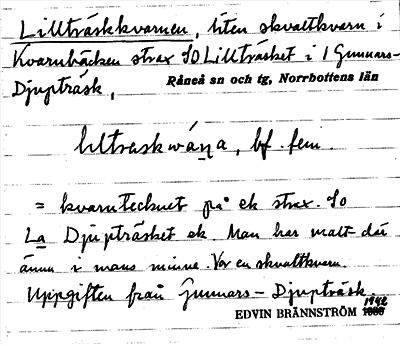 Lillträskkvarnen, liten skvaltkvarn i
Kvarnbäcken strax SO Lillträsket i 1 Gunnars-
Djupträsk,
Råneå sn och tg, Norrbottens län
lıltraskwána, bf. fem.
= kvarntecknet på ek strax SO
La Djupträsket ek. Man har malt där
ännu i mans minne. Var en skvaltkvarn.
Uppgiften från Gunnars-Djupträsk.
1942
EDVIN BRÄNNSTRÖM